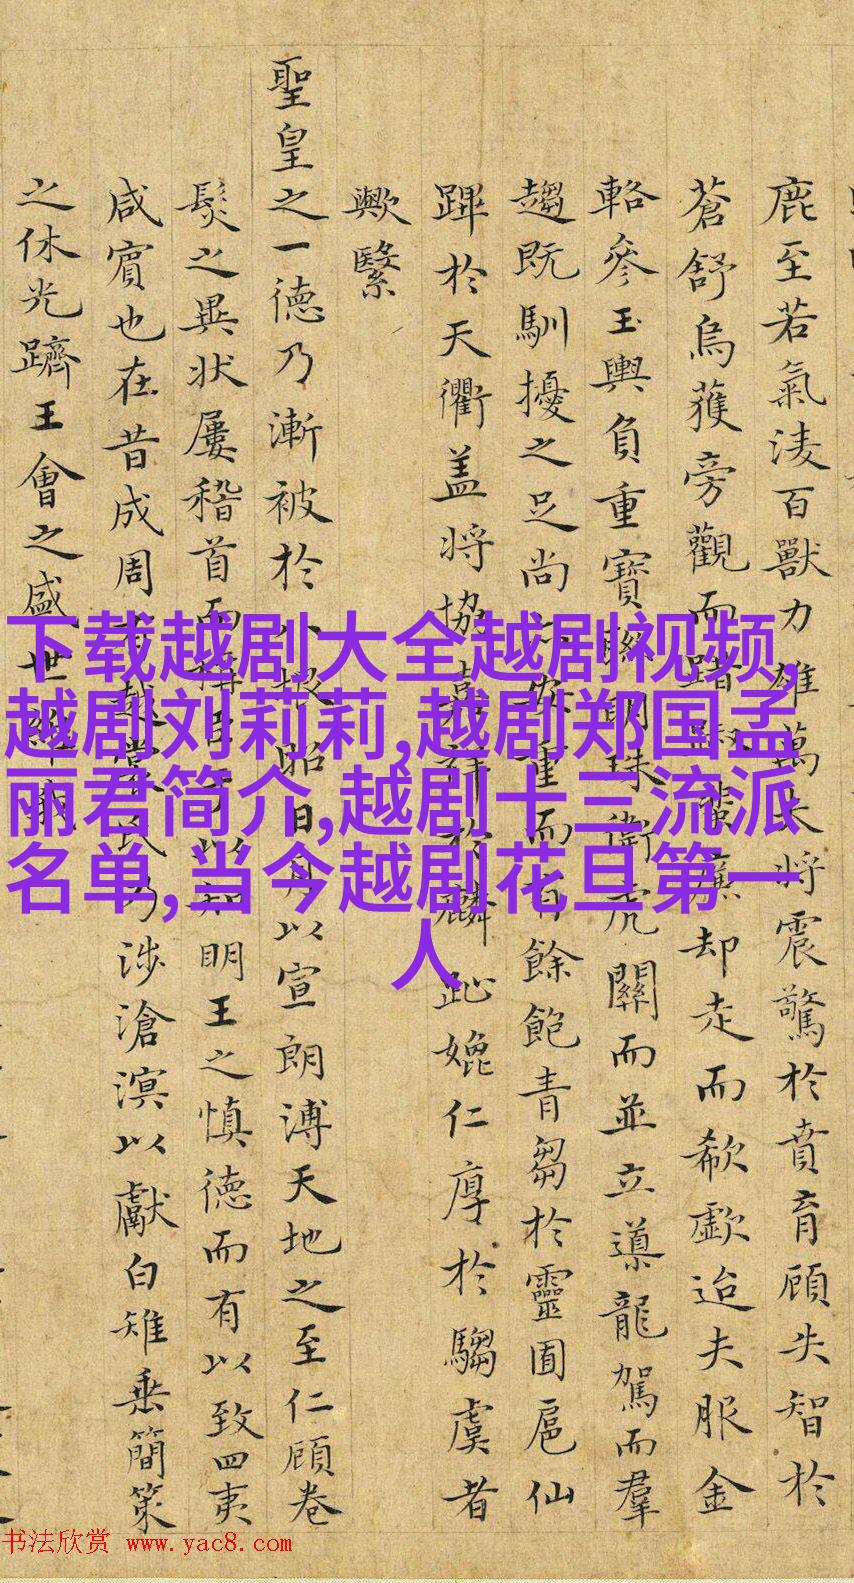 鹿至若氣淩百獸力雄萬夫將震驚於賁育顧失智於
蒼舒烏獲旁觀而蜚廉却走而欷歔迨夫服金
輅參玉輿負重寶明珠衛虎關而並立導龍駕而羣
趨既馴擾之足尚安重而有餘飽青芻於靈囿扈仙
蹕於天衢盖將協嘉祥於麟趾媲仁厚於騶虞者
歟繄
聖皇之一德乃漸被於八埏昭日月以宣朗溥天地之至仁顧卷
髮之異状屢稽首而稱臣以知明王之慎德而有以致四夷
咸賓也在昔成周有越裳氏乃涉滄溟以獻白雉垂簡策
之休光躋王會之盛世
下载越剧大全越剧视频,
越剧刘莉莉,越剧郑国孟
丽君简介,越剧十三流派
名单,当今越剧花旦第一
人
书法欣赏 www.yac8.com